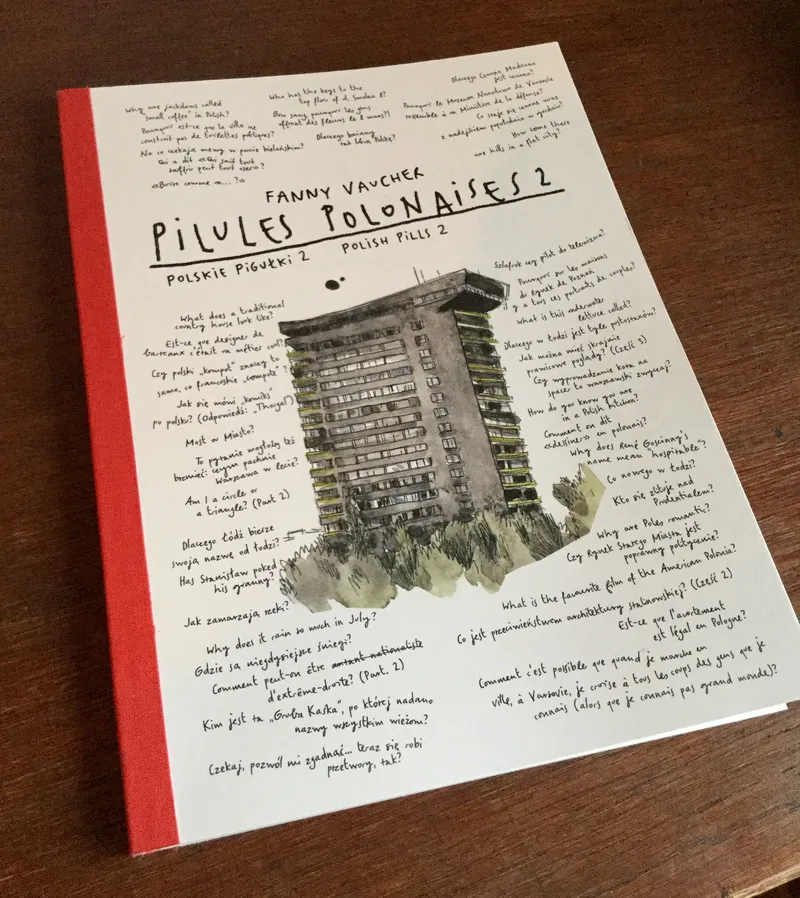 Why are jackdaws called
"small coffee" in Polish?
Pourquoi est-ce que la ville ne
construit pas de toilettes publiques?
Na co czekają mewy w parcie bielańskim?
Qui a dit «Qui sait tout
souffrir peut tout oser»?
«Boire comme un...?»
Who has the keys to the
top floor of ul. Smolna 8?
Bon sang, pourquoi les gens
offrent des fleurs le 8 mars?!
Dlaczego bociany
tak lubią Polskę?
Dlaczego Czarna Madonna
jest czarna?
Pourquoi le Muzeum Narodowe de Varsovie
ressemble à un Ministère de la défense?
Co staje się czarne wraz
z nadejściem popołudnia w grudniu?
How come there
are hills in a flat city?
FANNY VAUCHER
PILULES POLONAISES 2
POLSKIE PIGUŁKI 2 POLISH PILLS 2
What does a traditional
country house look like?
Est-ce que designer de
barreaux c'était un métier cool?
Czy polski „kompot" znaczy to
samo, co francuskie „compote"?
Jak się mówi „komiks"
po polsku? (Odpowiedź: „Thorgal")
Most w Mieście?
To pytanie mogłoby też
brzmieć: czym pachnie
Warszawa w lecie?
Am I a circle or
a triangle? (Part 2)
Dlaczego Łódź bierze
swoją nazwę od łodzi?
Has Stanisław poked
his granny?
Jak zamarzają rzeki?
Why does it rain so much in July?
Gdzie są niegdysiejsze śniegi?
Comment peut-on être autant nationaliste
d'extrême-droite? (Part. 2)
Kim jest ta „Gruba Kaśka", po której nadano
nazwy wszystkim wieżom?
Czekaj, pozwól mi zgadnąć... teraz się robi
przetwory, tak?
Szlafrok czy pilot do telewizora?
Pourquoi sur les maisons
du Rynek de Poznań
y a tous ces portraits de couples?
What is this underwater
lettuce called?
Dlaczego w Łodzi jest tyle pustostanów?
Jak można mieć skrajnie
prawicowe poglądy? (Cześć 3)
Czy wyprowadzanie kota na
spacer to warszawski zwyczaj?
How do you know you are
in a Polish kitchen?
Comment on dit
«dessiner» en polonais?
Why does René Goscinny's
name mean "hospitable"?
Co nowego w Łodzi?
Kto się zlituje nad
Prudentialem?
Why are Poles romantic?
Czy Rynek Starego Miasta jest
poprawny politycznie?
What is the favourite film of the American Polonia?
Co jest przeciwieństwem architektury stalinowskiej? (Cześć 2)
Est-ce que l'avortement
est légal en Pologne?
Comment c'est possible que quand je marche en
ville, à Varsovie, je croise à tous les coups des gens que je
connais (alors que je connais pas grand monde)?